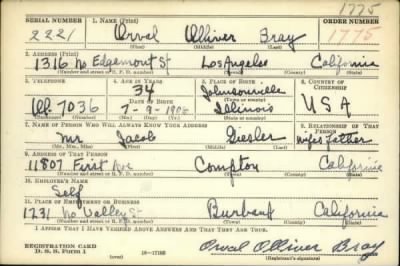 1775
SERIAL NUMBER 1. NAME (Print) ORDER NUMBER
2221 Orval Olliver Bray 1775
(First) (Middle) (Last)
2. ADDRESS (Print)
1316 No Edgemont St Los Angeles California
(Number and street or R. F. D. number) (Town) (County) (State)
3. TELEPHONE 4. AGE IN YEARS 5. PLACE OF BIRTH 6. COUNTRY OF CITIZENSHIP
34 Johnsonville
DATE OF BIRTH (Town or county)
7036 7-9-1906 Illinois USA
(Exchange) (Number) (Mo.) (Day) (Yr.) (State or country)
7. NAME OF PERSON WHO WILL ALWAYS KNOW YOUR ADDRESS 8. RELATIONSHIP OF THAT PERSON
Mr Jacob Giesler Wifes father
(Mr., Mrs., Miss) (First) (Middle) (Last)
9. ADDRESS OF THAT PERSON
11807 First Ave Compton California
(Number and street or R. F. D. number) (Town) (County) (State)
10. EMPLOYER'S NAME
Self
11. PLACE OF EMPLOYMENT OR BUSINESS
1231 No Valley St Burbank California
(Number and street or R. F. D. number) (Town) (County) (State)
I AFFIRM THAT I HAVE VERIFIED ABOVE ANSWERS AND THAT THEY ARE TRUE.
REGISTRATION CARD
D. S. S. Form 1 16-17105 Orval Olliver Bray
(over) (Registrant's signature)